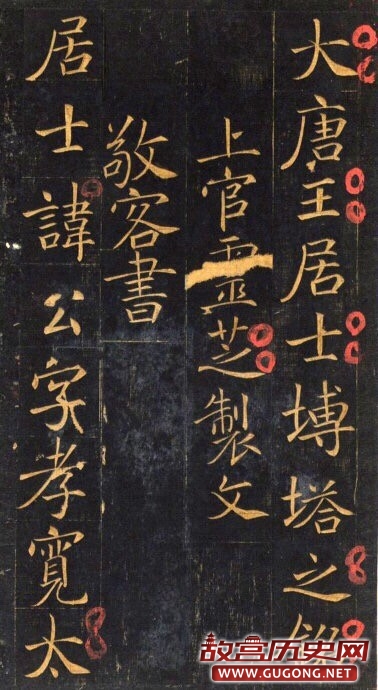 大唐王居士塼塔之銘
上官靈芝製文
敬客書
居士諱公字孝寬太
故宫历史网
WWW.GUGONG.NET